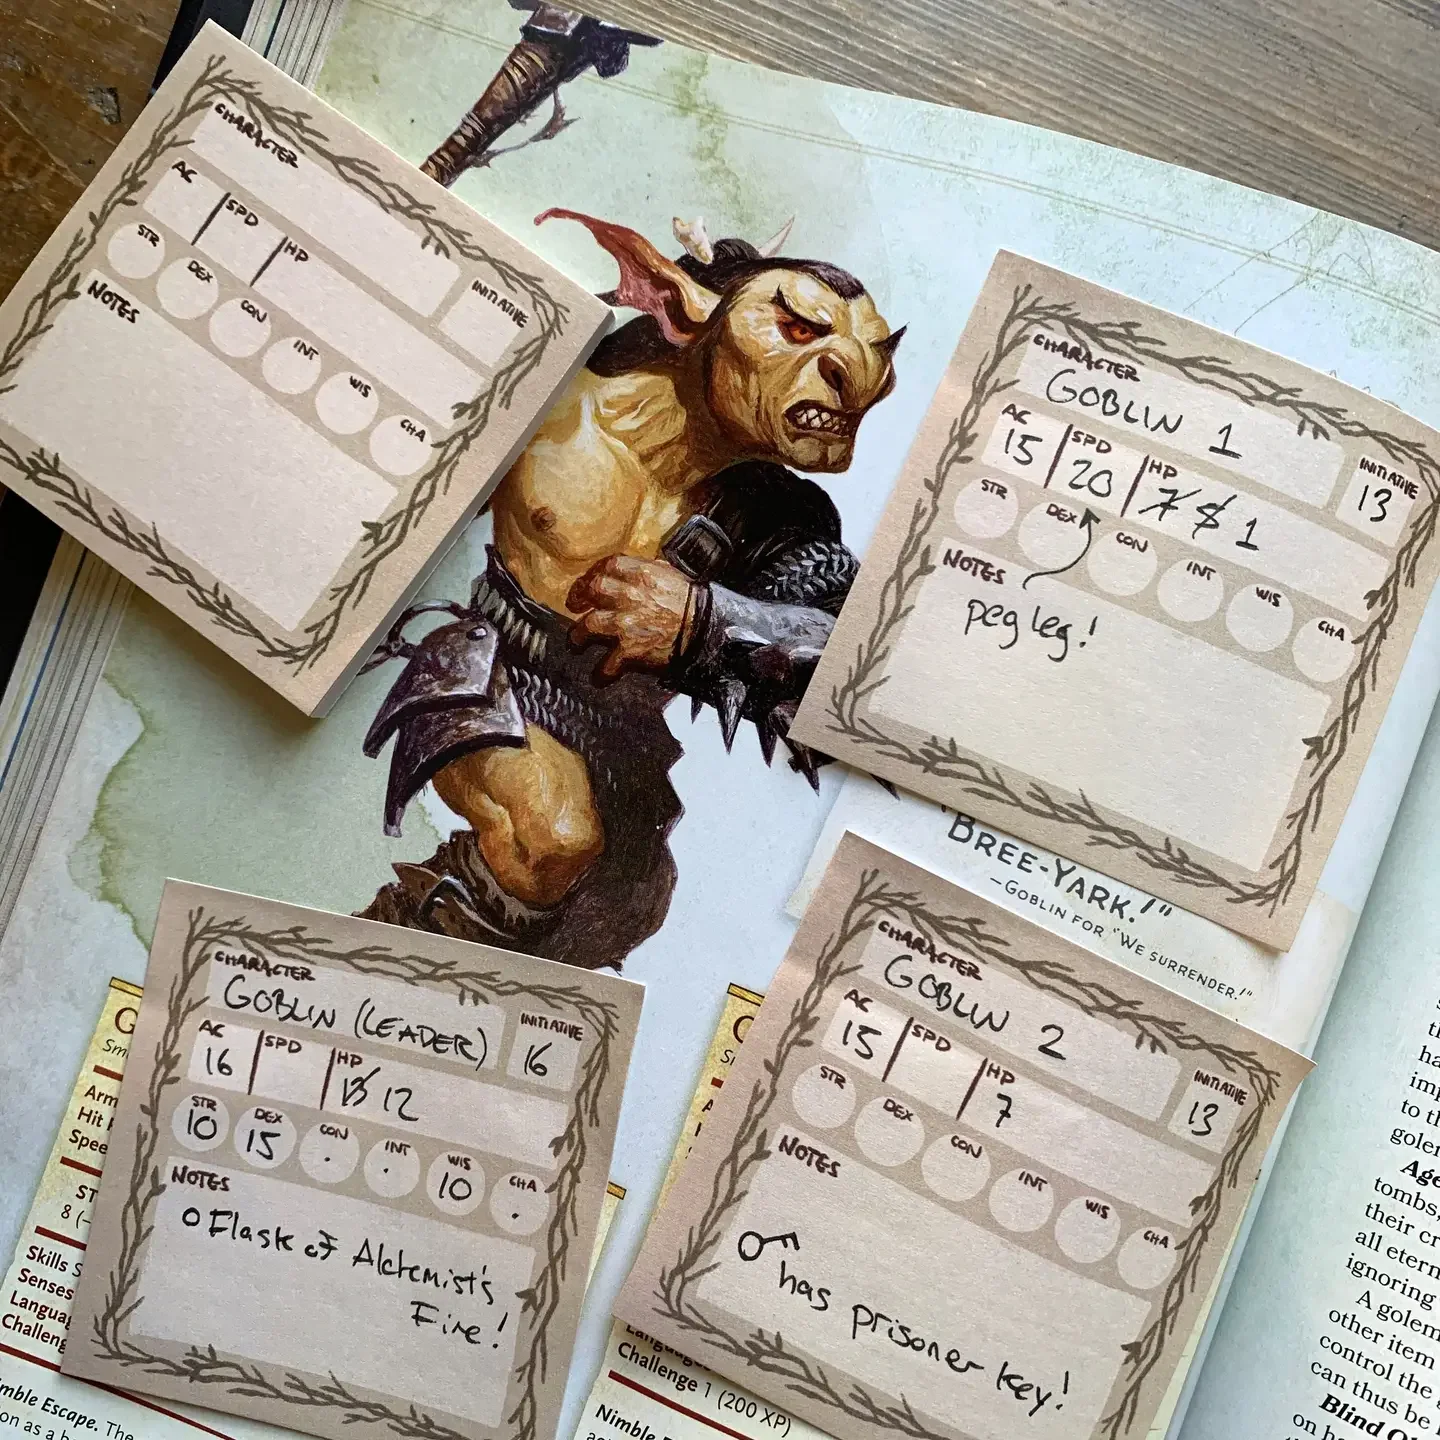 CHARACTER
INITIATIVE
AC SPD HP
STR DEX CON INT WIS CHA
NOTES
CHARACTER
GOBLIN 1
INITIATIVE
13
AC SPD HP
15 20 7 5 1
STR DEX CON INT WIS CHA
NOTES
peg leg!
"BREE-YARK!"
—GOBLIN FOR "WE SURRENDER!"
CHARACTER
GOBLIN (LEADER)
INITIATIVE
16
AC SPD HP
16 13 12
STR DEX CON INT WIS CHA
10 15 . . 10 .
NOTES
Flask of Alchemist's
Fire!
CHARACTER
GOBLIN 2
INITIATIVE
13
AC SPD HP
15 7
STR DEX CON INT WIS CHA
NOTES
has prisoner key!
Arm
Hit
Spee
ST
8 (–
Skills S
Senses
Langua
Challeng
imble Escape. The
on as a b
Challenge 1 (200 XP)
Nimble
to th
golem
Age
tombs,
their cr
all etern
ignoring
A golem
other item
control the
can thus be
Blind O
on